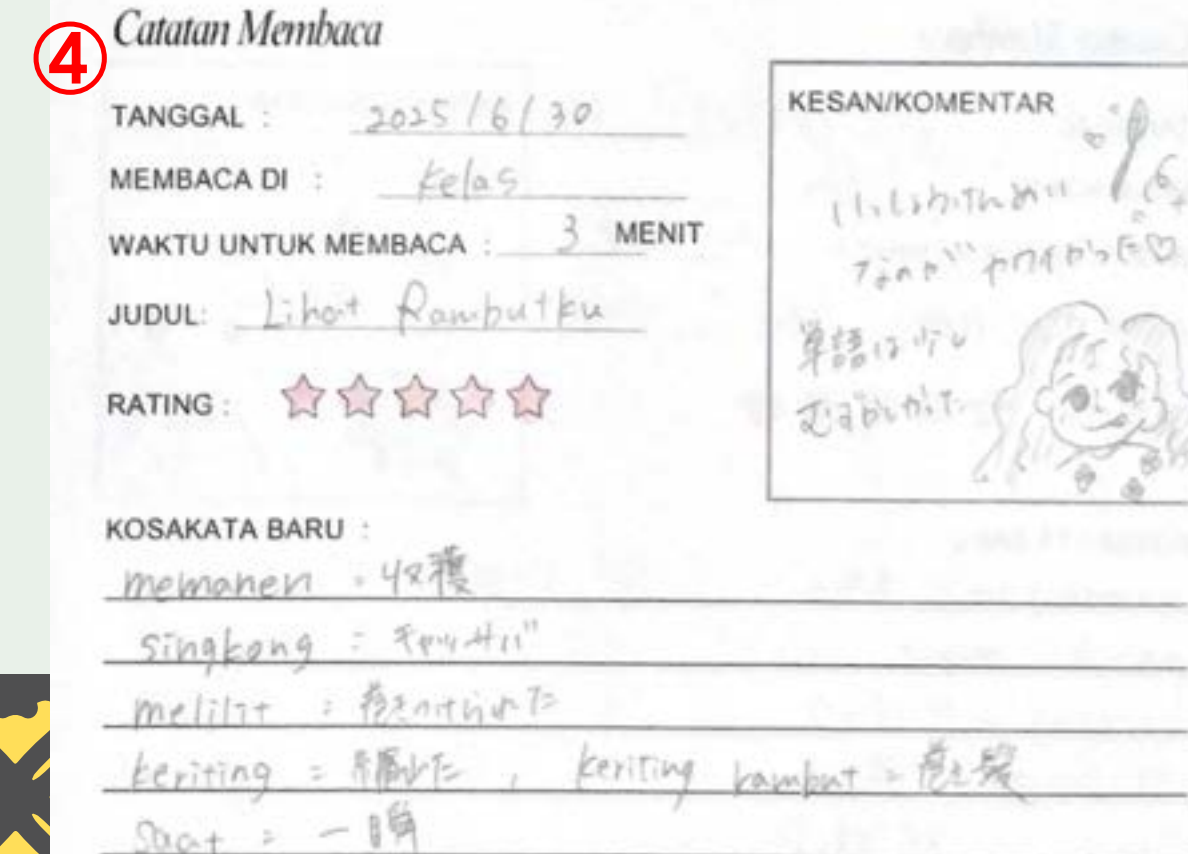 ④
Catatan Membaca
TANGGAL : 2025/6/30
MEMBACA DI : kelas
WAKTU UNTUK MEMBACA : 3 MENIT
JUDUL: Lihat Rambutku
RATING :
KESAN/KOMENTAR
いっしょうけんめい
なのが かわいかった♡
単語は少し
むずかしかった
KOSAKATA BARU :
memanen : 収穫
singkong : キャッサバ
melilit : 巻きつけられた
keriting = 縮れた , keriting rambut = 巻き髪
saat = 一瞬